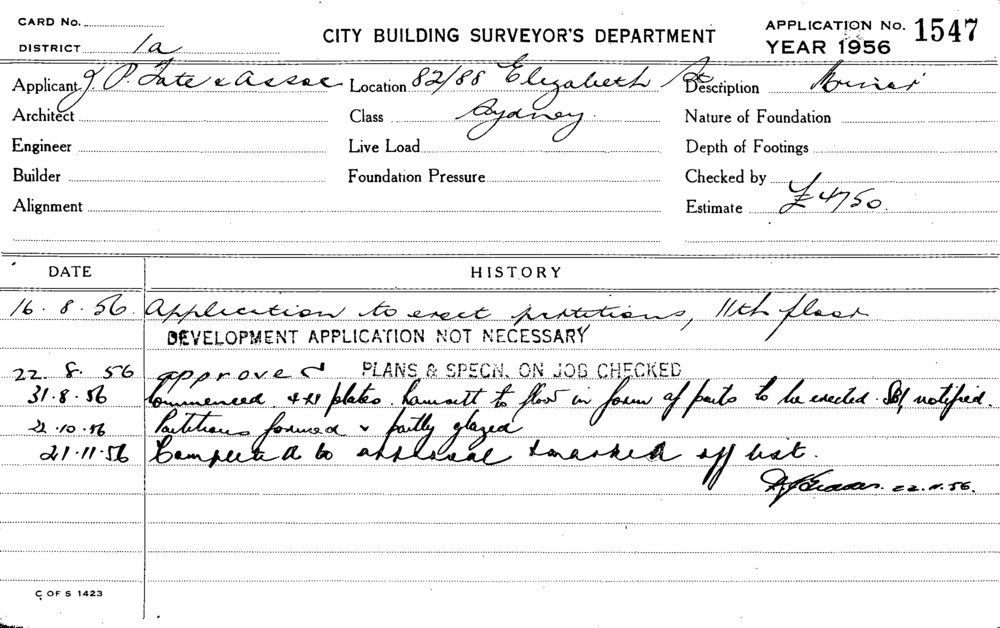 CARD No.
DISTRICT 1a
CITY BUILDING SURVEYOR'S DEPARTMENT
APPLICATION No. 1547
YEAR 1956
Applicant J. P. Tate & Assoc Location 82/88 Elizabeth St Description Minor
Architect Class Sydney. Nature of Foundation
Engineer Live Load Depth of Footings
Builder Foundation Pressure Checked by
Alignment Estimate £4750.
DATE HISTORY
16.8.56. Application to erect partitions, 11th floor
DEVELOPMENT APPLICATION NOT NECESSARY
22.8.56 approved PLANS & SPECN. ON JOB CHECKED
31.8.56 Commenced plates to floor in form of parts to be erected. notified.
22.10.56 Partitions formed & partly glazed
21.11.56 Completed to approval & marked off list.
22.11.56.
C OF S 1423